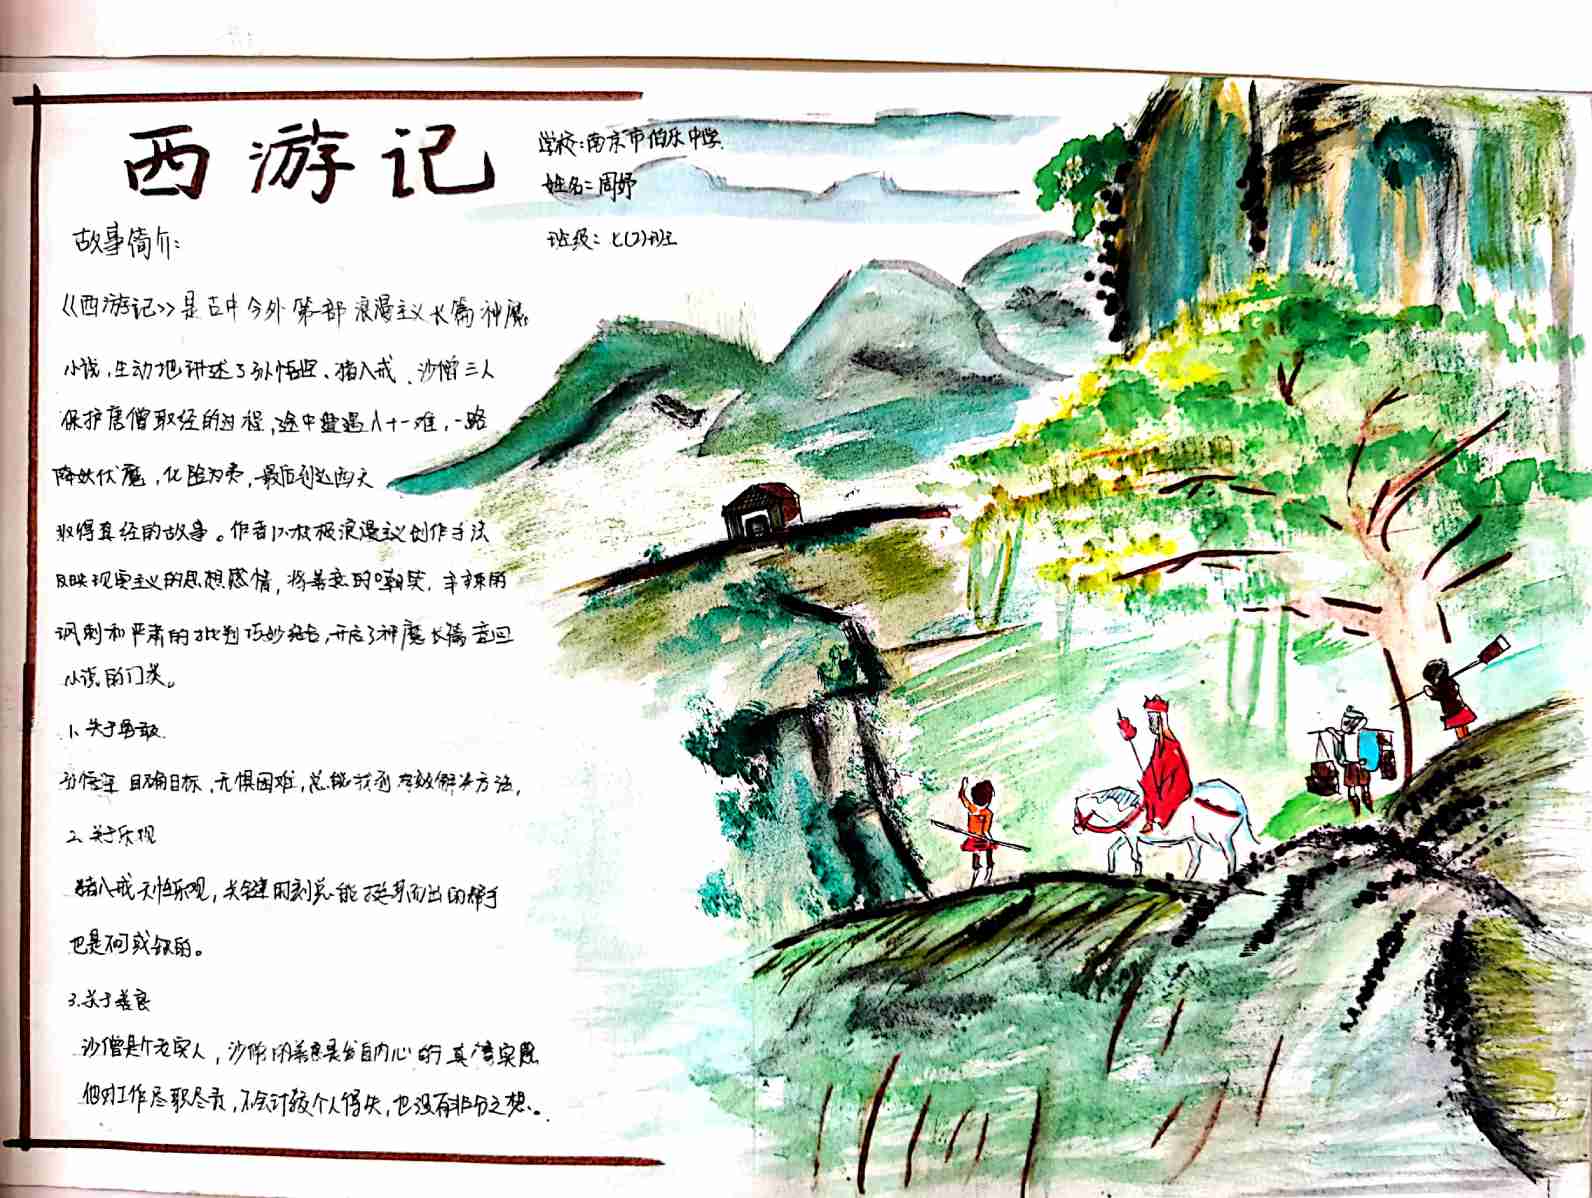 西游记
学校:南京市伯乐中学
姓名:周妤
班级:七(2)班
故事简介:
《西游记》是古中今外第一部浪漫主义长篇神魔
小说,生动地讲述了孙悟空、猪八戒、沙僧三人
保护唐僧取经的过程,途中遭遇八十一难,一路
降妖伏魔,化险为夷,最后到达西天
取得真经的故事。作者以积极浪漫主义创作手法
反映现实主义的思想感情,将善意的嘲笑,辛辣的
讽刺和严肃的批判巧妙结合,开启了神魔长篇章回
小说的门类。
1.关于勇敢
孙悟空目确目标,无惧困难,总能找到有效解决方法,
2.关于乐观
猪八戒天性乐观,关键时刻总能挺身而出的帮手
也是何或缺的。
3.关于善良
沙僧是个老实人,沙僧的善意是发自内心的真情实愿
他对工作尽职尽责,不会计较个人得失,也没有非分之想。